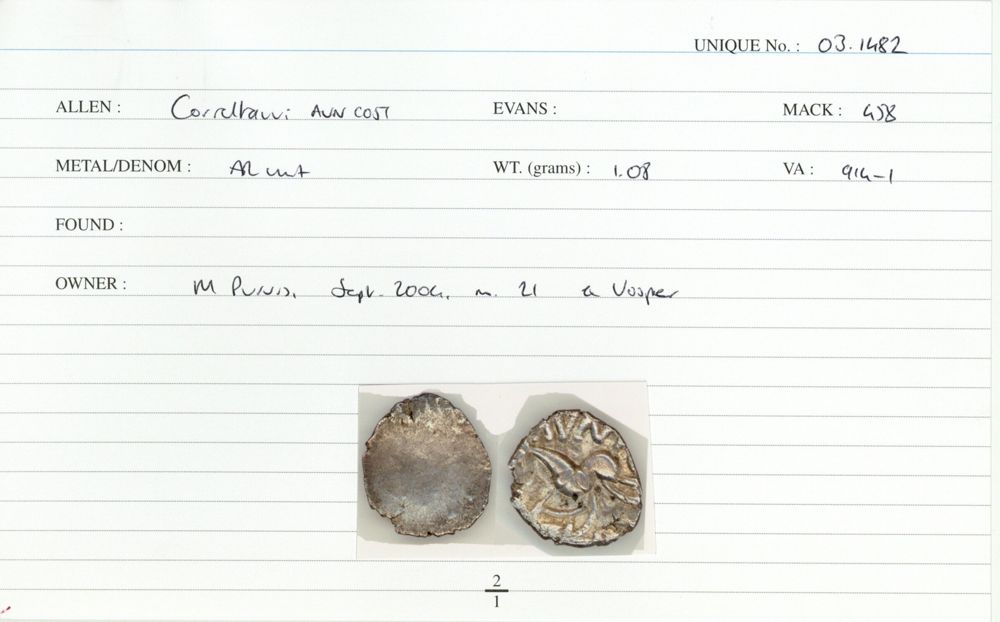 UNIQUE No. : 03.1482
ALLEN : Corieltauvi AVN COST EVANS : MACK : 458
METAL/DENOM : AR unit WT. (grams) : 1.08 VA : 914-1
FOUND :
OWNER : M Sept. 2004. 21 Vosper
VN
2
1